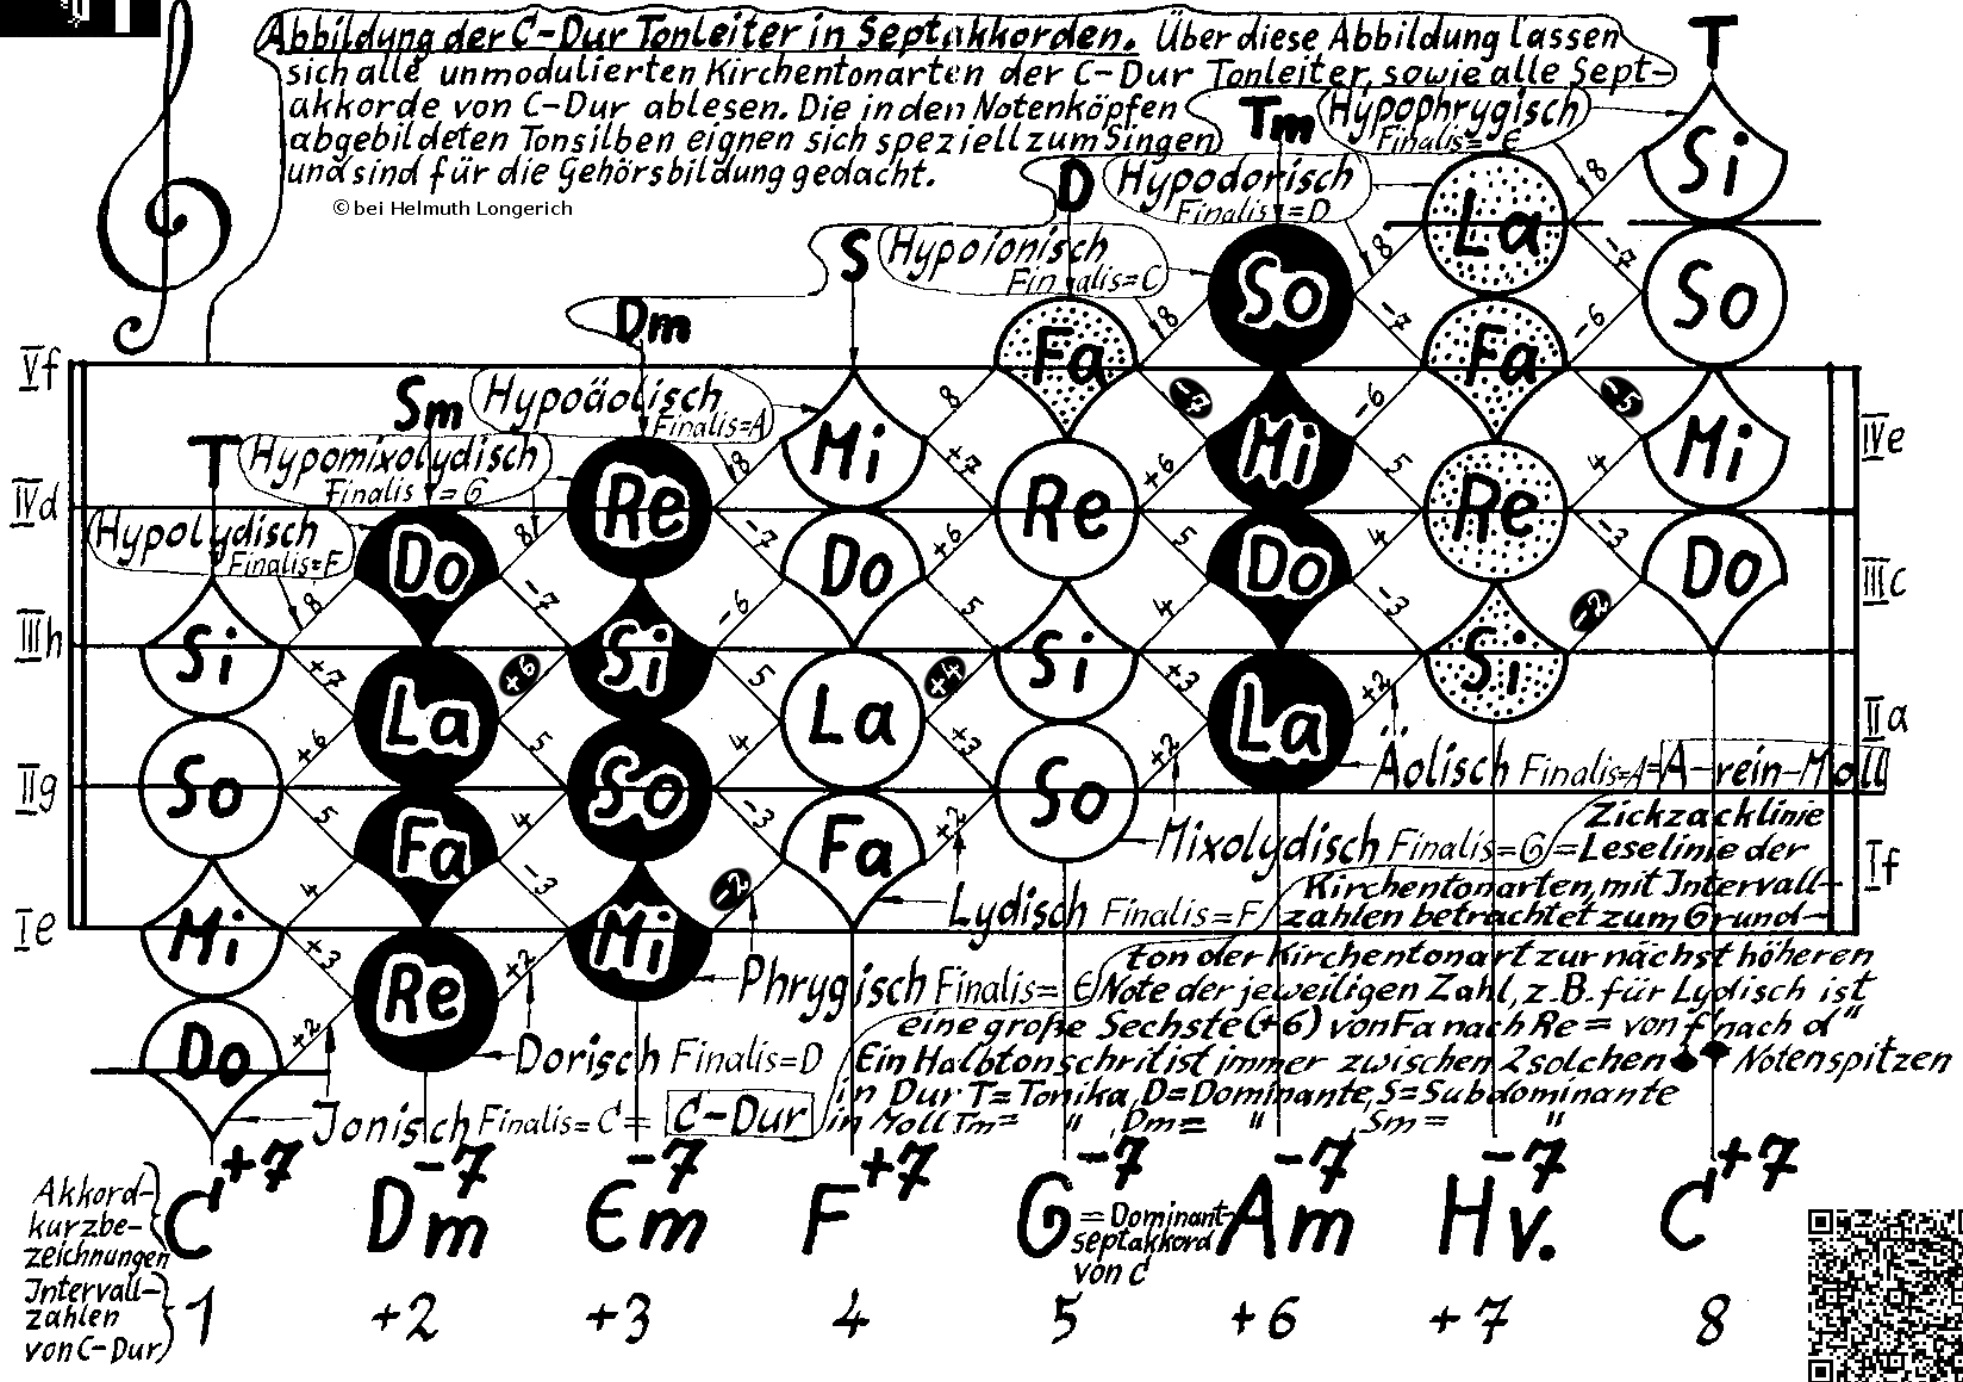 Abbildung der C-Dur Tonleiter in Septakkorden. Über diese Abbildung lassen
sich alle unmodulierten Kirchentonarten der C-Dur Tonleiter, sowie alle Sept-
akkorde von C-Dur ablesen. Die in den Notenköpfen
abgebildeten Tonsilben eignen sich speziell zum Singen
und sind für die Gehörsbildung gedacht.
© bei Helmuth Longerich
T
Tm
D
S
Dm
Sm
T
Hypophrygisch
Finalis= E
Hypodorisch
Finalis=D
Hypoionisch
Finalis=C
Hypoäolisch
Finalis=A
Hypomixolydisch
Finalis=G
Hypolydisch
Finalis=F
Vf
IVd
IIIh
IIg
Ie
IVe
IIIc
IIa
If
Si
So
Mi
Do
Do
La
Fa
Re
Re
Si
So
Mi
Mi
Do
La
Fa
Fa
Re
Si
So
So
Mi
Do
La
La
Fa
Re
Si
Si
So
Mi
Do
8 +7 +6 5 4 +3 +2
8 -7 +6 5 4 -3 +2
8 -7 -6 5 4 -3 -2
8 +7 +6 5 +4 +3 +2
8 -7 +6 5 4 +3 +2
8 -7 -6 5 4 -3 +2
8 -7 -6 -5 4 -3 -2
Äolisch Finalis=A=A-rein-Moll
Mixolydisch Finalis=G
Lydisch Finalis=F
Phrygisch Finalis= E
Dorisch Finalis=D
Jonisch Finalis=C= C-Dur
Zickzacklinie
=Leselinie der
Kirchentonarten, mit Intervall-
zahlen betrachtet zum Grund-
ton der Kirchentonart zur nächst höheren
Note der jeweiligen Zahl, z.B. für Lydisch ist
eine große Sechste (+6) von Fa nach Re = von f' nach d"
Ein Halbtonschritt ist immer zwischen 2 solchen Notenspitzen
in Dur T=Tonika, D=Dominante, S=Subdominante
in Moll Tm= " , Dm= " , Sm= "
Akkord-
kurzbe-
zeichnungen
C+7 Dm-7 Em-7 F+7 G-7 Am-7 Hv.-7 C+7
=Dominant-
septakkord
von C
Intervall-
zahlen
von C-Dur
1 +2 +3 4 5 +6 +7 8